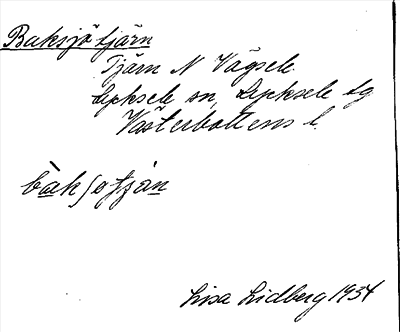 Baksjötjärn
Tjärn N Vägsele
Lycksele sn, Lycksele lg
Västerbottens l.
Lisa Lidberg 1934